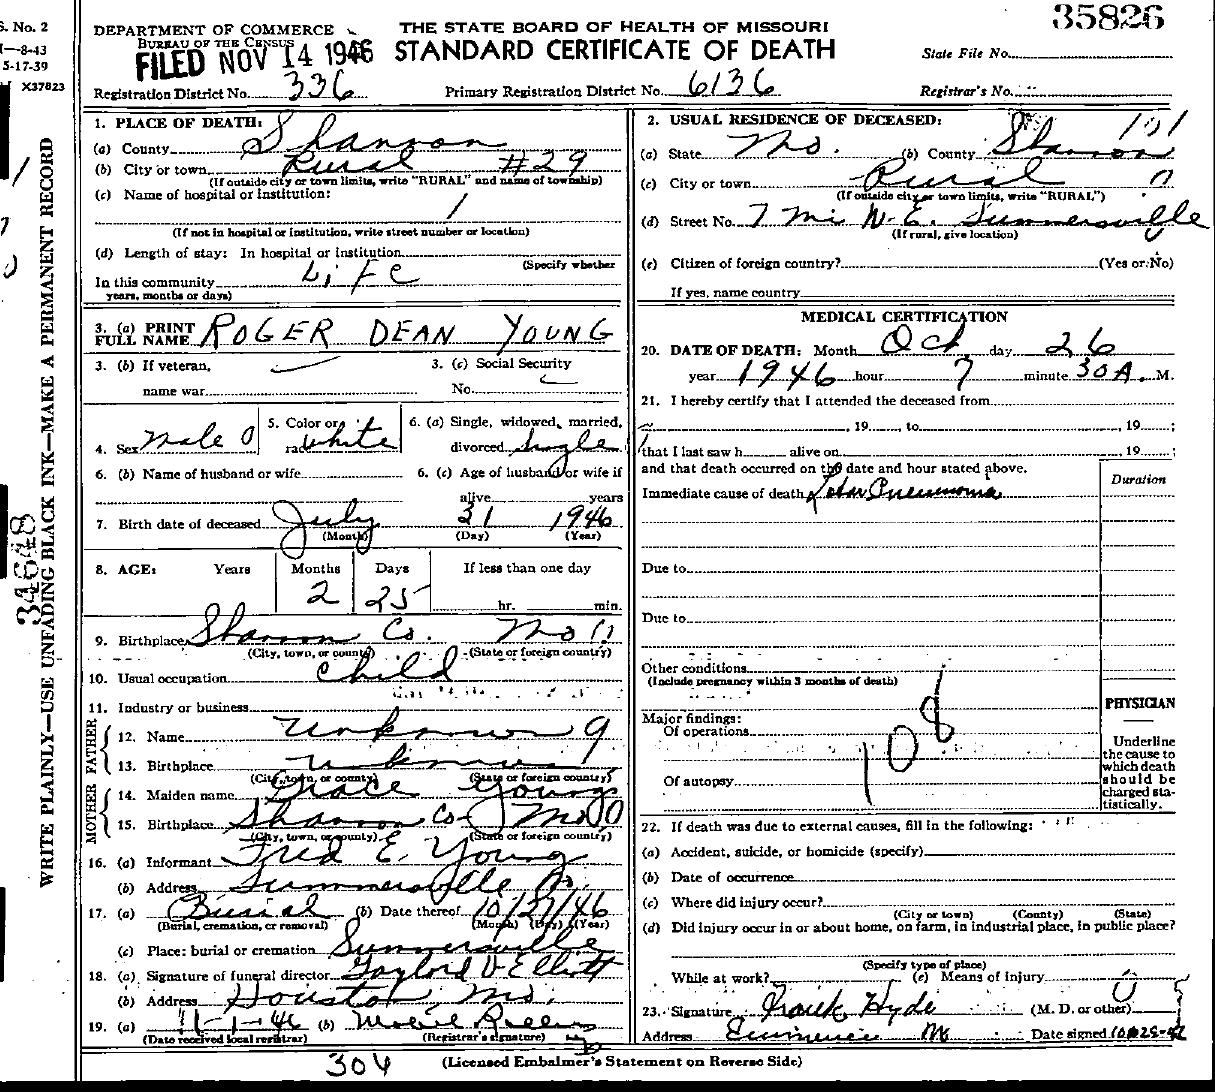 35826
S. No. 2
I—8-43
5-17-39
X37823
DEPARTMENT OF COMMERCE
BUREAU OF THE CENSUS
FILED NOV 14 1946
THE STATE BOARD OF HEALTH OF MISSOURI
STANDARD CERTIFICATE OF DEATH
State File No.
Registration District No. 336
Primary Registration District No. 6136
Registrar's No.
WRITE PLAINLY—USE UNFADING BLACK INK—MAKE A PERMANENT RECORD
34648
1. PLACE OF DEATH:
(a) County Shannon
(b) City or town Rural #29
(If outside city or town limits, write "RURAL" and name of township)
(c) Name of hospital or institution:
(If not in hospital or institution, write street number or location)
(d) Length of stay: In hospital or institution
(Specify whether
In this community Life
years, months or days)
3. (a) PRINT
FULL NAME ROGER DEAN YOUNG
3. (b) If veteran,
name war
3. (c) Social Security
No.
4. Sex Male 0
5. Color or
race White
6. (a) Single, widowed, married,
divorced Single
6. (b) Name of husband or wife
6. (c) Age of husband or wife if
alive years
7. Birth date of deceased July 31 1946
(Month) (Day) (Year)
8. AGE: Years Months Days If less than one day
2 25 hr. min.
9. Birthplace Shannon Co. Mo
(City, town, or county) (State or foreign country)
10. Usual occupation Child
11. Industry or business
FATHER
12. Name Unknown 9
13. Birthplace Unknown 9
(City, town, or county) (State or foreign country)
MOTHER
14. Maiden name Grace Young
15. Birthplace Shannon Co- Mo 0
(City, town, or county) (State or foreign country)
16. (a) Informant Fred E. Young
(b) Address Summersville Mo.
17. (a) Burial (b) Date thereof 10/27/46
(Burial, cremation, or removal) (Month) (Day) (Year)
(c) Place: burial or cremation Summersville
18. (a) Signature of funeral director Gaylord V Elliott
(b) Address Houston, Mo.
19. (a) 11-1-46 (b)
(Date received local registrar) (Registrar's signature)
2. USUAL RESIDENCE OF DECEASED: 101
(a) State Mo. (b) County Shannon
(c) City or town Rural 0
(If outside city or town limits, write "RURAL")
(d) Street No. 7 Mi N.E. Summersville
(If rural, give location)
(e) Citizen of foreign country? (Yes or No)
If yes, name country
MEDICAL CERTIFICATION
20. DATE OF DEATH: Month Oct day 26
year 1946 hour 7 minute 30 A. M.
21. I hereby certify that I attended the deceased from
, 19 , to , 19 ;
that I last saw h alive on , 19 ;
and that death occurred on the date and hour stated above.
Duration
Immediate cause of death Lobar Pneumonia
Due to
Due to
Other conditions
(Include pregnancy within 3 months of death)
Major findings:
Of operations
108
Of autopsy
PHYSICIAN
Underline
the cause to
which death
should be
charged sta-
tistically.
22. If death was due to external causes, fill in the following:
(a) Accident, suicide, or homicide (specify)
(b) Date of occurrence
(c) Where did injury occur?
(City or town) (County) (State)
(d) Did injury occur in or about home, on farm, in industrial place, in public place?
(Specify type of place)
While at work? (e) Means of injury
23. Signature Frank Hyde (M. D. or other)
Address Eminence Mo Date signed
304
(Licensed Embalmer's Statement on Reverse Side)